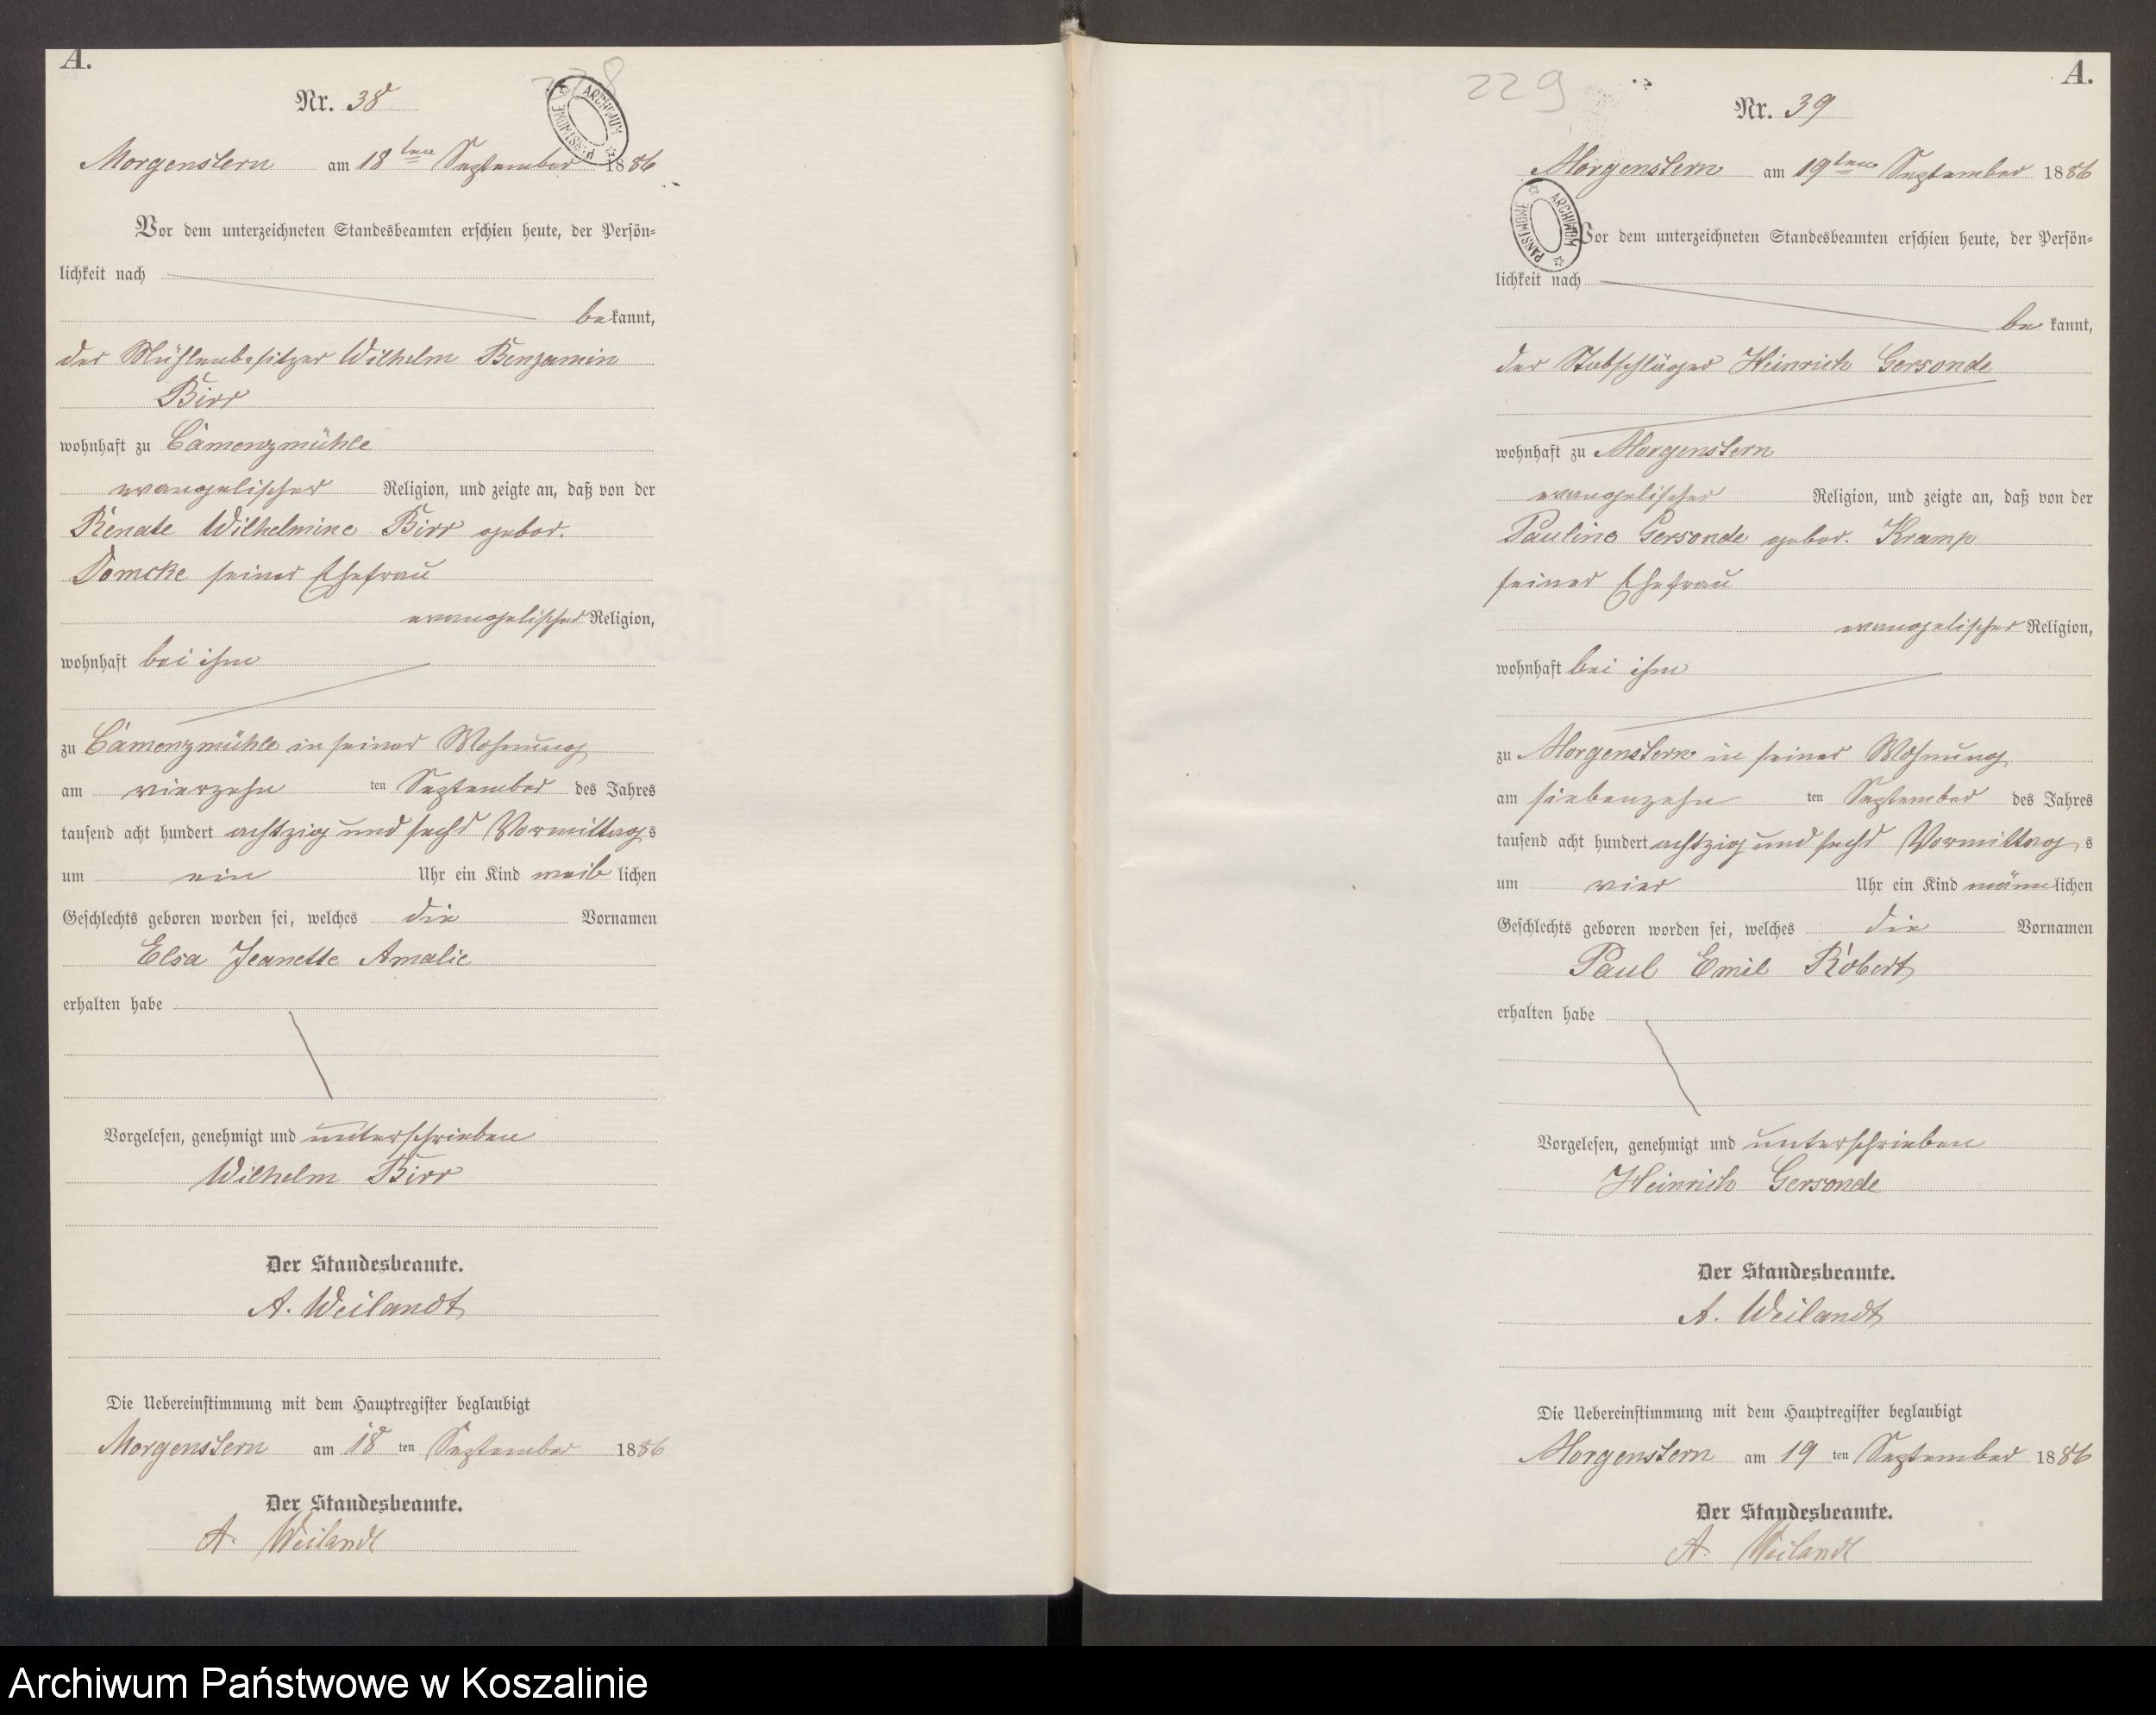 A.
228
Nr. 38
ARCHIWUM PAŃSTWOWE
Morgenstern am 18ten September 1886
Vor dem unterzeichneten Standesbeamten erschien heute, der Persön-
lichkeit nach
bekannt,
der Mühlenbesitzer Wilhelm Benjamin
Birr
wohnhaft zu Camenzmühle
evangelischer Religion, und zeigte an, daß von der
Renate Wilhelmine Birr gebor.
Domcke seiner Ehefrau
evangelischer Religion,
wohnhaft bei ihm
zu Camenzmühle in seiner Wohnung
am vierzehn ten September des Jahres
tausend acht hundert achtzig und sechs Vormittags
um ein Uhr ein Kind weiblichen
Geschlechts geboren worden sei, welches die Vornamen
Elsa Jeanette Amalie
erhalten habe
Vorgelesen, genehmigt und unterschrieben
Wilhelm Birr
Der Standesbeamte.
A. Weilandt
Die Uebereinstimmung mit dem Hauptregister beglaubigt
Morgenstern am 18 ten September 1886
Der Standesbeamte.
A. Weilandt
A.
229
Nr. 39
Morgenstern am 19ten September 1886
ARCHIWUM PAŃSTWOWE
Vor dem unterzeichneten Standesbeamten erschien heute, der Persön-
lichkeit nach
bekannt,
der Stabschläger Heinrich Gersonde
wohnhaft zu Morgenstern
evangelischer Religion, und zeigte an, daß von der
Pauline Gersonde gebor. Kramp
seiner Ehefrau
evangelischer Religion,
wohnhaft bei ihm
zu Morgenstern in seiner Wohnung
am siebenzehn ten September des Jahres
tausend acht hundert achtzig und sechs Vormittags
um vier Uhr ein Kind männlichen
Geschlechts geboren worden sei, welches die Vornamen
Paul Emil Robert
erhalten habe
Vorgelesen, genehmigt und unterschrieben
Heinrich Gersonde
Der Standesbeamte.
A. Weilandt
Die Uebereinstimmung mit dem Hauptregister beglaubigt
Morgenstern am 19 ten September 1886
Der Standesbeamte.
A. Weilandt
Archiwum Państwowe w Koszalinie